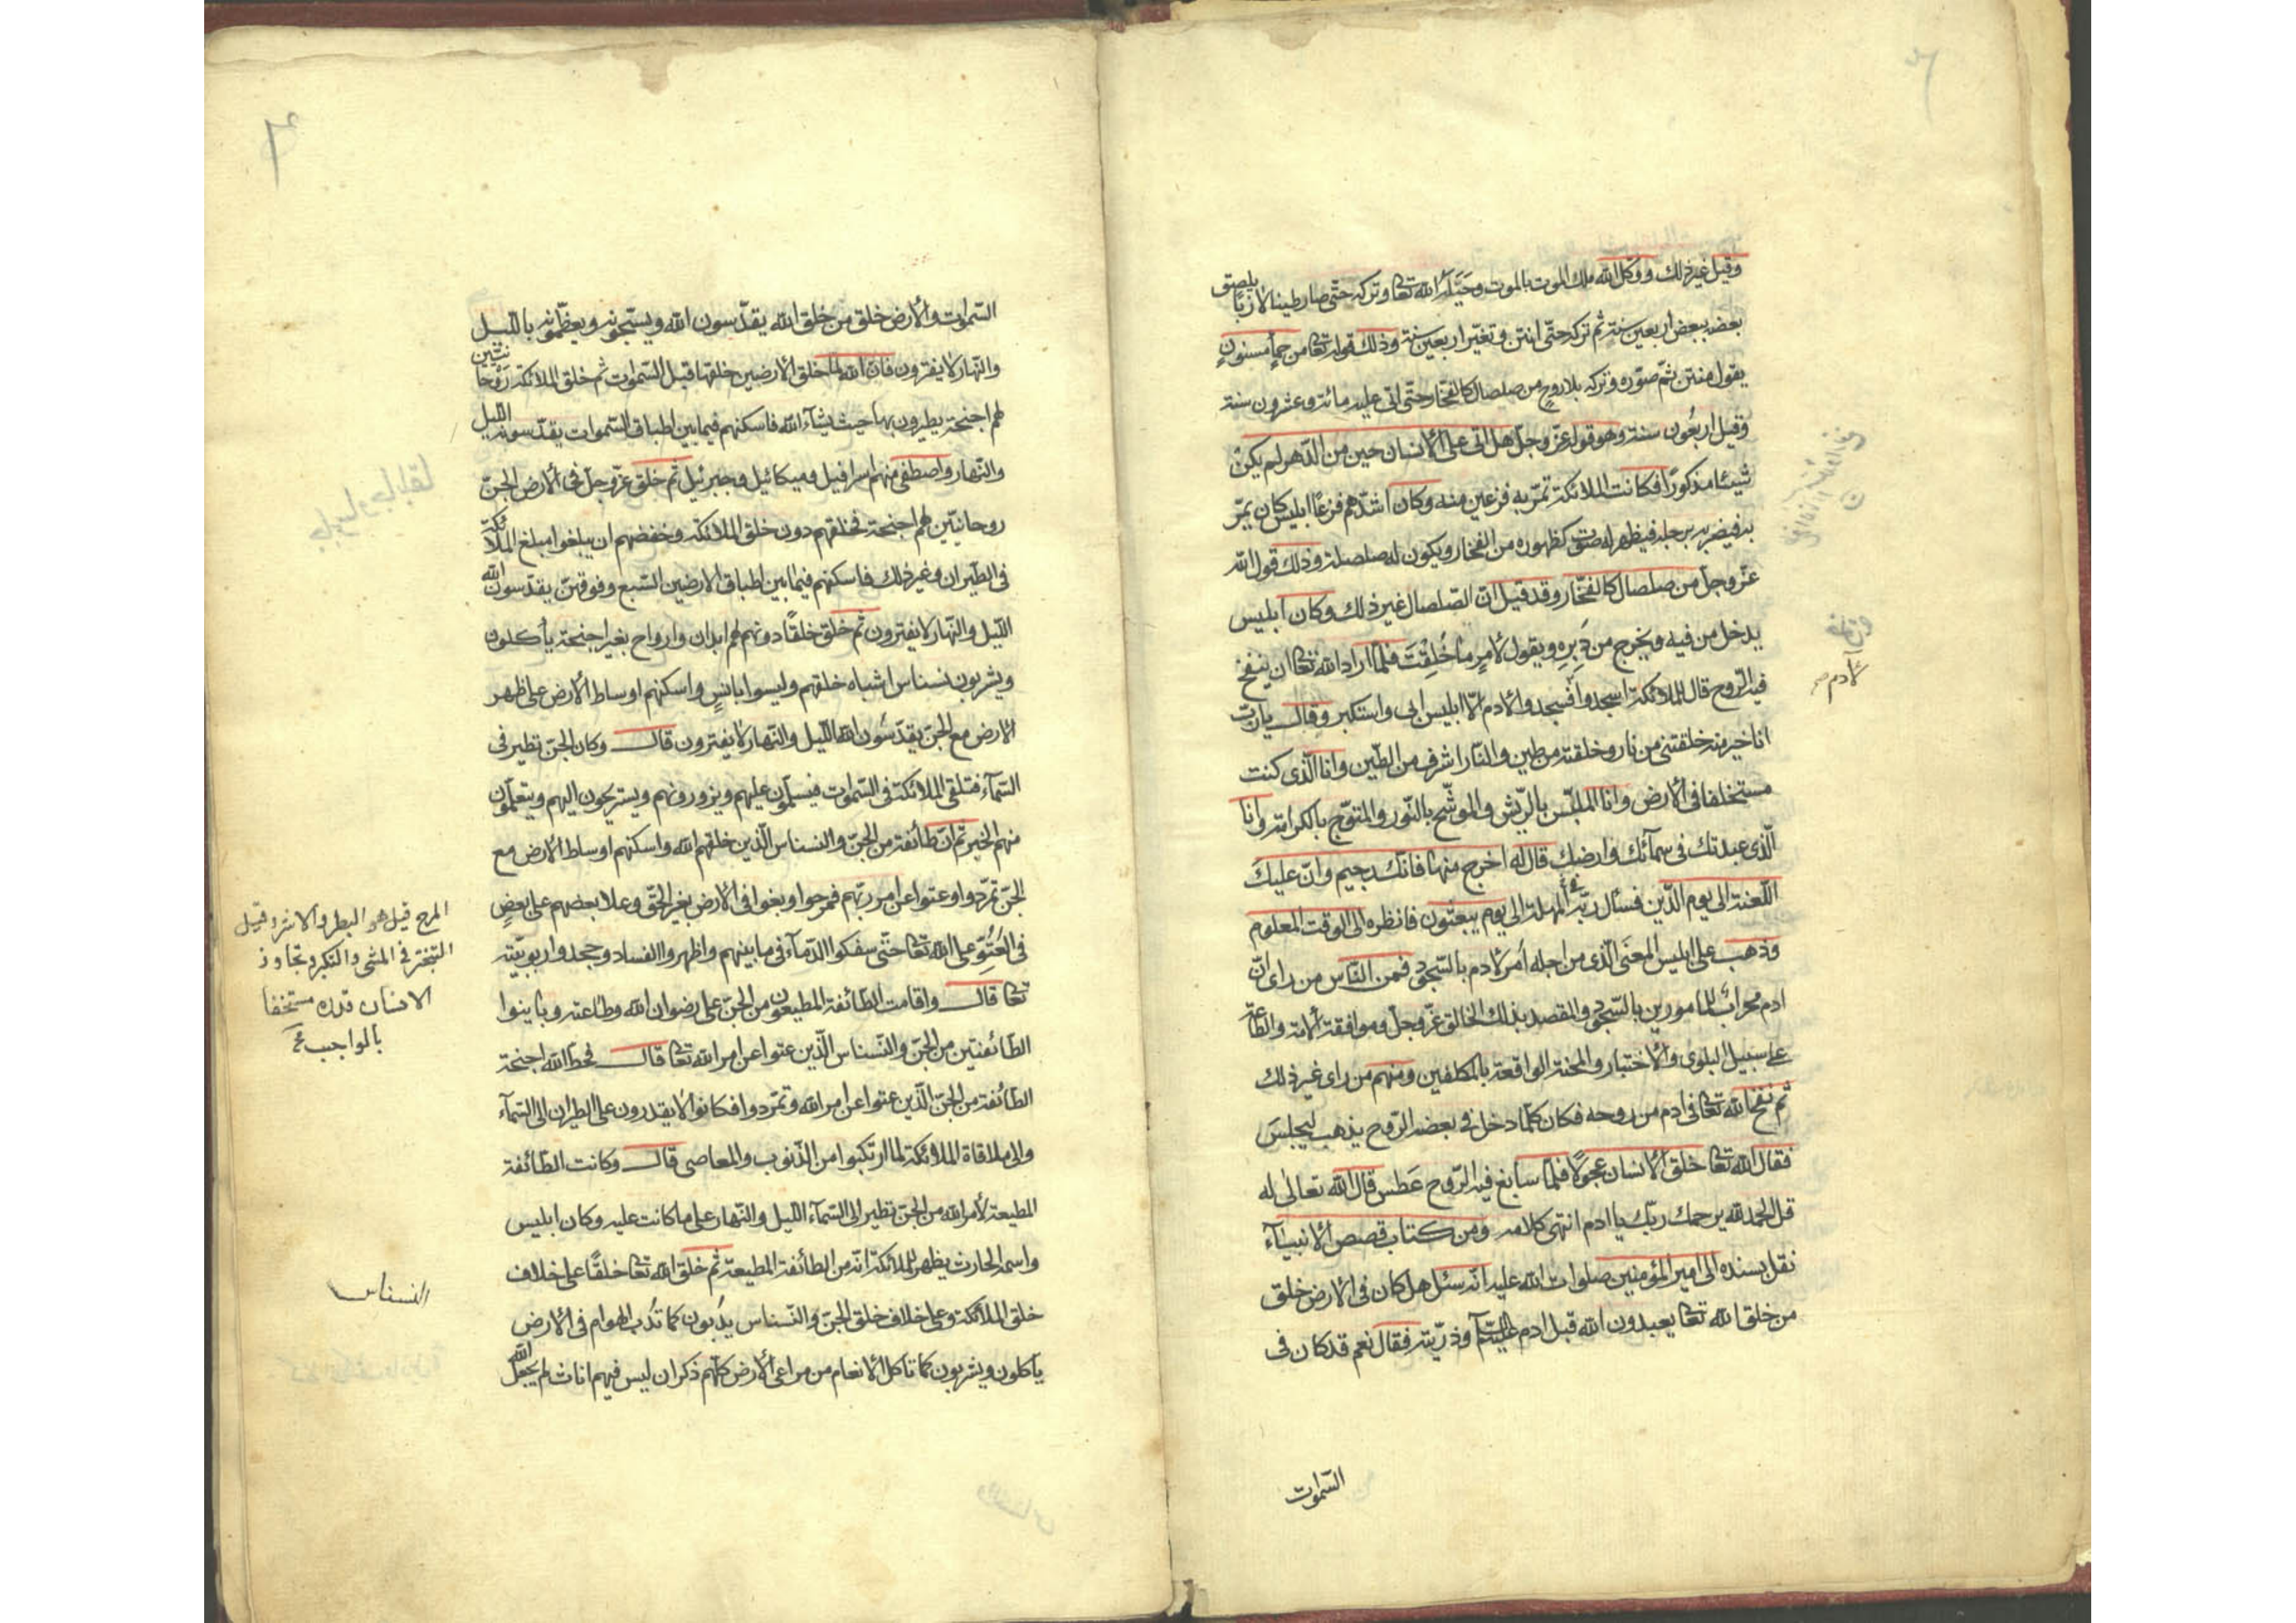 وقيل غير ذلك ووكل الله ملك الموت بالموت وخيّله الله تعا وتركه حتّى صار طينا لازبًا يلصق
بعضه ببعض اربعين سنة ثم تركه حتّى انتن وتغيّر اربعين سنة وذلك قوله تعا من حمأٍ مسنونٍ
يقول منتن ثمّ صوّره وتركه بلا روح من صلصال كالفخّار حتّى اتى عليه مائة وعشرون سنة
وقيل اربعُون سنة وهو قوله عزّ وجلّ هل اتى على الانسان حين من الدّهر لم يكن
شيئا مذكورًا فكانت الملائكة تمرّ به فزعين منه وكان اشدّهم فزعًا ابليس كان يمرّ
به فيضربه برجله فيظهر له صوت كظهوره من الفخار ويكون له صلصلة وذلك قول الله
عزّ وجلّ من صلصال كالفخّار وقد قيل انّ الصّلصال غير ذلك وكان ابليس
يدخل من فيه ويخرج من دُبرِهِ ويقول لأمرٍ ما خُلِقْتَ فلمّا اراد الله تعا ان ينفخ
فيه الرّوح قال للملائكة اسجدوا فسجدوا لادم الّا ابليس ابى واستكبر وقال يا ربّ
انا خير منه خلقتنى من نار وخلقته من طين والنّار اشرف من الطّين وانا الّذى كنت
مستخلفا فى الارض وانا الملبّس بالرّيش والموشّح بالنّور والمتوّج بالكرامة وانا
الّذى عبدتك فى سمآئك وارضك قال له اخرج منها فانّك رجيم وانّ عليك
اللّعنة الى يوم الدّين فسئال ربّه المهلة الى يوم يبعثون فانظره الى الوقت المعلوم
وذهب على ابليس المعنَى الّذى من اجله أمر لادم بالسّجود فمن النّاس من راى انّ
ادم محرابٌ للمامورين بالسّجود والمقصد بذلك الخالق عزّ وجلّ وموافقة الامة والطّاعة
على سبيل البلوى والاختبار والمحنة الواقعة بالمكلفين ومنهم من راى غير ذلك
ثم نفخ الله تعا فى ادم من روحه فكان كلّما دخل فى بعضه الرّوح يذهب ليجلسَ
فقال الله تعا خلق الانسان عجولًا فلمّا سابغ فيه الرّوح عَطس قال الله تعالى له
قل الحمد لله يرحمك ربّك يا ادم انتهى كلامه ومن كتاب قصص الانبيآء
نقل بسنده الى امير المؤمنين صلوات الله عليه انّه سئل هل كان فى الارض خلق
من خلق الله تعا يعبدون الله قبل ادم عليه السّلام وذرّيته فقال نعم قد كان فى
السّموات
لادم
السّموات والارض خلق من خلق الله يقدّسون الله ويسبّحونه ويعظّمونه بالليل
والنّهار لا يفترون فانّ الله لمّا خلق الارضين خلقها قبل السّموات ثم خلق الملائكة روحانيّين
لهم اجنحة يطيرون بها حيث يشآء الله فاسكنهم فيما بين اطباق السّموات يقدّسونه الليل
والنّهار واصطفى منهم اسرافيل وميكائيل وجبرئيل ثم خلق عزّ وجلّ فى الارض الجنّ
روحانيّين لهم اجنحة فخلقهم دون خلق الملائكة وخفضهم ان يبلغوا مبلغ الملائكة
فى الطّيران وغير ذلك فاسكنهم فيما بين اطباق الارضين السّبع وفوقهنّ يقدّسون الله
اللّيل والنّهار لا يفترون ثم خلق خلقًا دونهم لهم ابدان وارواح بغير اجنحة يأكلون
ويشربون نسناس اشباه خلقهم وليسوا بانسٍ واسكنهم اوساط الارض على ظهر
الارض مع الجنّ يقدّسُون الله اللّيل والنّهار لا يفترون قال وكان الجنّ تطير فى
السّمآء فتلقى الملائكة فى السّموات فيسلّمون عليهم ويزورونهم ويستريحون اليهم ويتعلّمون
منهم الخير ثم انّ طآئفة من الجنّ والنسناس الّذين خلقهم الله واسكنهم اوساط الارض مع
الجنّ تمرّدوا وعتوا عن امر ربّهم فمرحوا وبغوا فى الارض بغير الحقّ وعلا بعضهم على بعضٍ
فى العُتُوّ على الله تعا حتّى سفكوا الدّمآء فى ما بينهم واظهروا الفساد وجحدوا ربوبيّته
تعا قال واقامت الطّائفة المطيعون من الجنّ على رضوان الله وطاعته وباينوا
الطّائفتين من الجنّ والنّسناس الّذين عتوا عن امر الله تعا قال فحطّ الله اجنحة
الطّائفة من الجنّ الّذين عتوا عن امر الله وتمرّدوا فكانوا لا يقدرون على الطيران الى السّمآء
والى ملاقاة الملائكة لما ارتكبوا من الذّنوب والمعاصى قال وكانت الطّائفة
المطيعة لأمر الله من الجنّ تطير الى السّمآء اللّيل والنّهار على ما كانت عليه وكان ابليس
واسمه الحارث يظهر للملائكة انّه من الطائفة المطيعة ثم خلق الله تعا خلقًا على خلاف
خلق الملائكة وعلى خلاف خلق الجنّ والنّسناس يدُبون كما تدُب الهوام فى الارض
يأكلون ويشربون كما تاكل الانعام من مراعى الارض كلّهم ذكران ليس فيهم اناث لم يجعل الله
المرح قيل هو البطر والاشر وقيل
التبختر فى المشى والتكبر وتجاوز
الانسان قدره مستخفا
بالواجب
النسناس